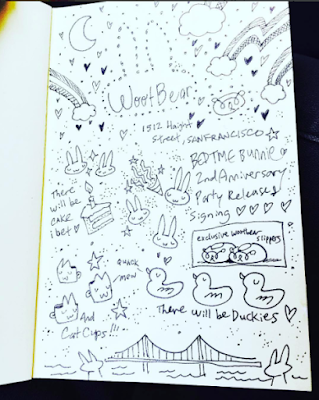 WootBear
1512 Haight
Street, SANFRANCISCO
BEDTIME Bunnie
2nd Anniversary
Party Release &
signing
There
will be
CAKE
bet
exclusive wootbear
slippers
QUACK
MEW
There will be Duckies
And
Cat Cups!!!